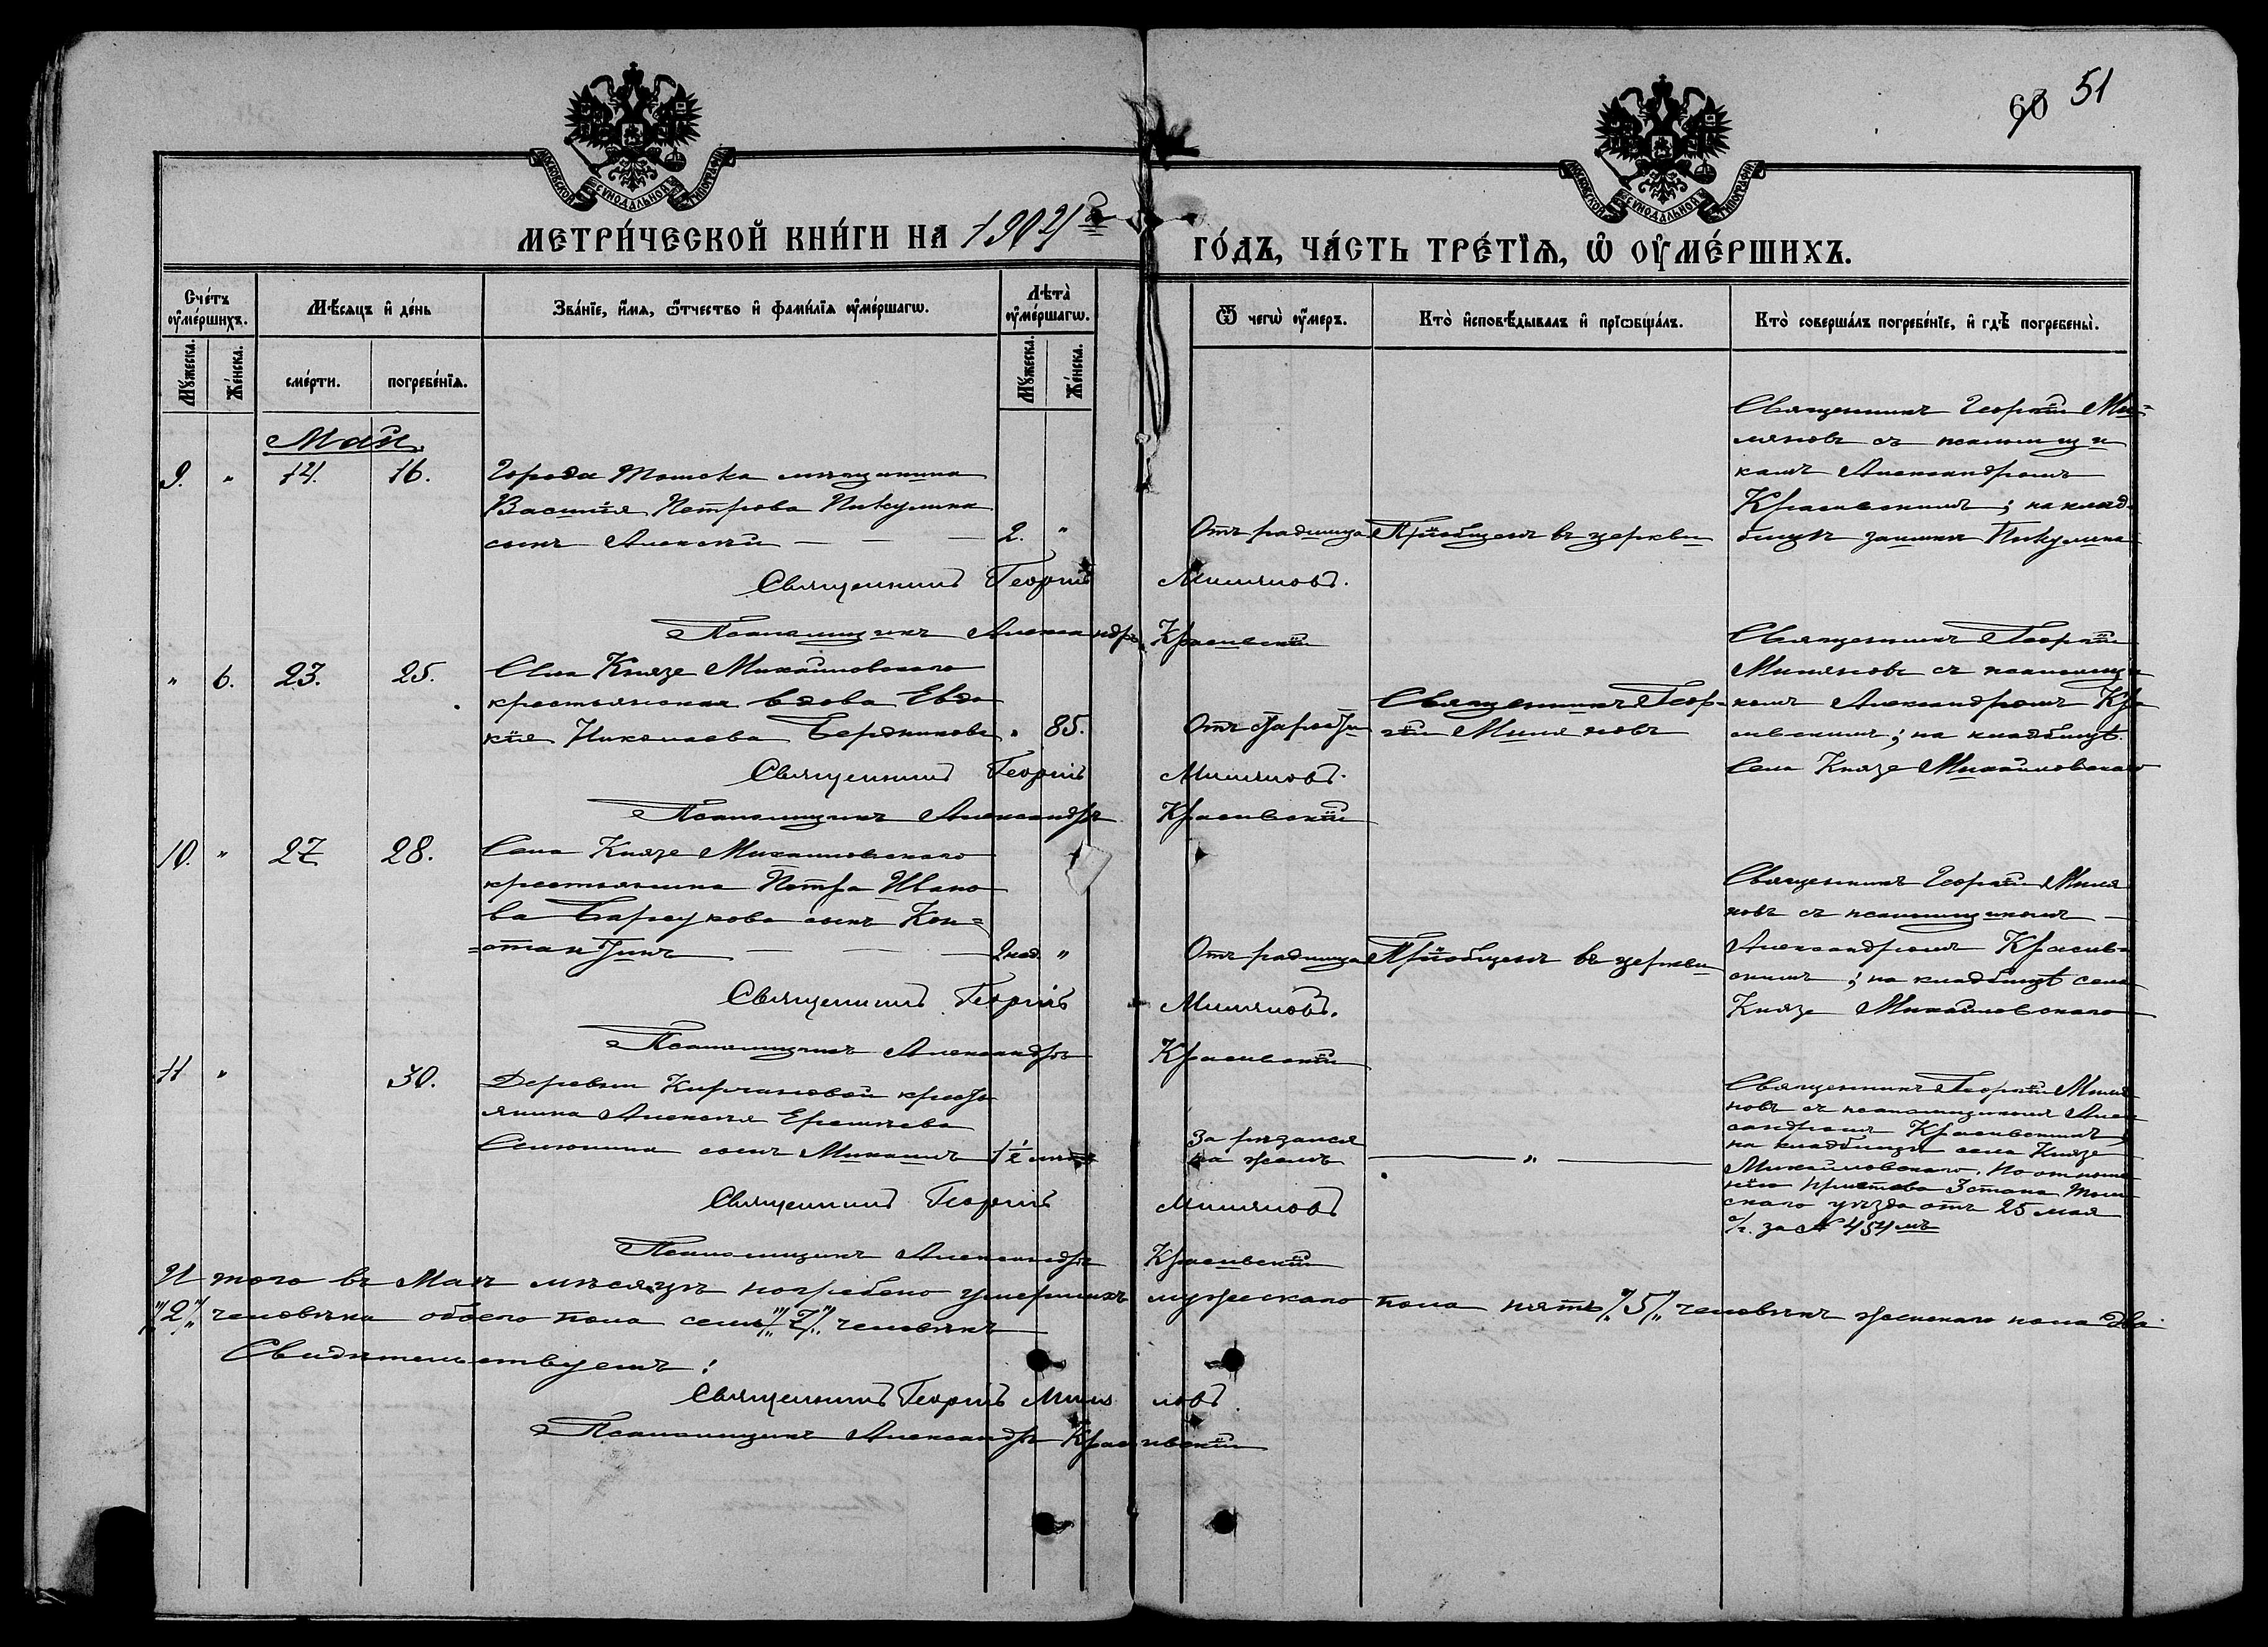 60 51
МОСКОВСКОЙ СѴНОДАЛЬНОЙ ТИПОГРАФІИ
МОСКОВСКОЙ СѴНОДАЛЬНОЙ ТИПОГРАФІИ
МЕТРИ́ЧЕСКОЙ КНИ́ГИ НА 190
ГО́ДЪ, ЧА́СТЬ ТРЕ́ТІѦ, Ѡ ОУ҆МЕ́РШИХЪ.
Сче́тъ оу҆ме́ршихъ.
Мѣ́сяцъ и҆ де́нь
Зва́нїе, и҆́мя, ѻ҆́тчество и҆ фами́лїя оу҆ме́ршагѡ.
Лѣта̀ оу҆ме́ршагѡ.
Ѿ чегѡ̀ оу҆́меръ.
Кто̀ и҆сповѣ́дывалъ и҆ прїѡбща́лъ.
Кто̀ соверша́лъ погребе́нїе, и҆ гдѣ̀ погребены̀.
Мꙋ́жеска.
Же́нска.
сме́рти.
погребе́нїя.
Мꙋ́жеска.
Же́нска.
Май.
9. " 14. 16.
Города Томска мѣщанина
Василія Петрова Пикулина
сынъ Алексѣй — — — 2. "
Отъ родимца
Пріобщенъ въ церкви
Священникъ Георгій Ми=
ляновъ съ псаломщи
комъ Александромъ
Красивскимъ; на клад-
бищѣ заимки Пикулина
Священникъ Георгій Миляновъ.
Псаломщикъ Александръ Красивскій
" 6. 23. 25.
Села Князе Михайловскаго
крестьянская вдова Евдо
кія Николаева Бердникова " 85.
Отъ старости
Священникъ Геор-
гій Миляновъ
Священникъ Георгій
Миляновъ съ псаломщи
комъ Александромъ Кра
сивскимъ; на кладбищѣ
села Князе Михайловскаго
Священникъ Георгій Миляновъ.
Псаломщикъ Александръ Красивскій
10. " 27 28.
Села Князе Михайловскаго
крестьянина Петра Ивано
ва Барсукова сынъ Кон=
=стантинъ — — — 2 нед. "
Отъ родимца
Пріобщенъ въ церкви
Священникъ Георгій Миля
новъ съ псаломщикомъ —
Александромъ Красив-
скимъ; на кладбищѣ села
Князе Михайловскаго
Священникъ Георгій Миляновъ.
Псаломщикъ Александръ Красивскій
11 " 30.
Деревни крестья
янина Алексѣя
сынъ Михаилъ 1½
За рѣзался
на —— " ——
Священникъ Георгій Миля
новъ съ псаломщикомъ Алек
сандромъ Красивскимъ,
на кладбищѣ села Князе
Михайловскаго. По отноше
нію пристава 3 стана Том
скаго уѣзда отъ 25 мая
с/г. за № 454мъ
Священникъ Георгій Миляновъ
Псаломщикъ Александръ Красивскій
И того въ Маѣ мѣсяцѣ погребено умершихъ мужескаго пола пять "/5/" человѣкъ женскаго пола два
"/2/" человѣка обоего пола семь "/7/" человѣкъ
Свидѣтельствуемъ:
Священникъ Георгій Миляновъ
Псаломщикъ Александръ Красивскій